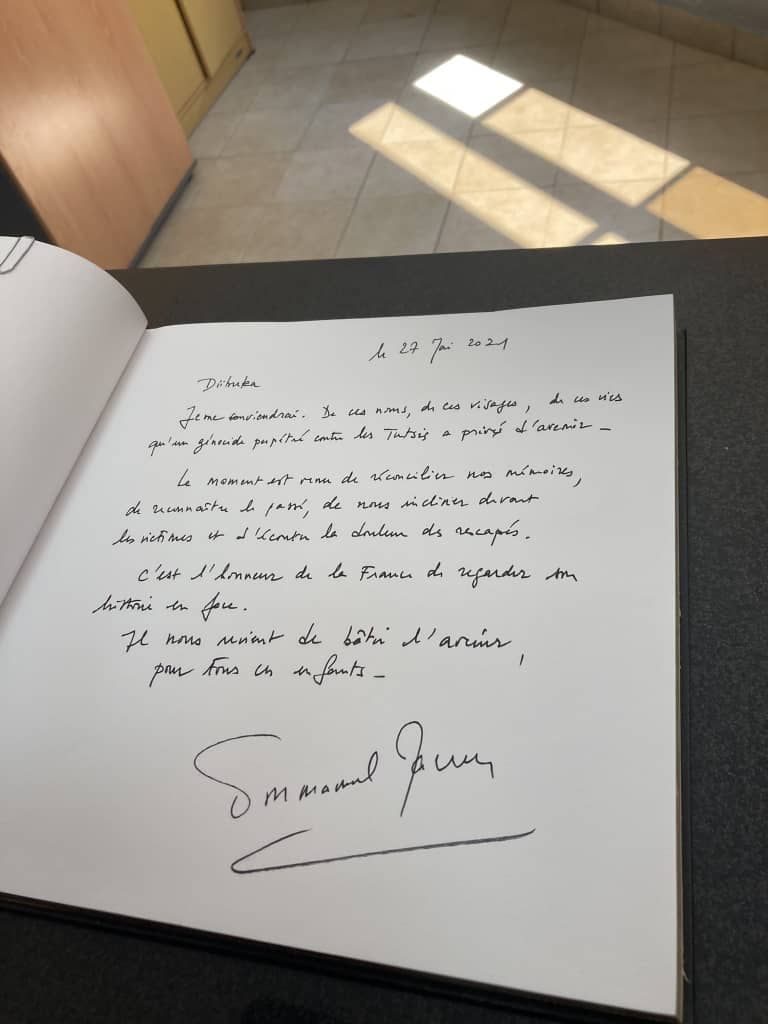 le 27 Mai 2021
Dibuka
Je me souviendrai. De ces noms, de ces visages, de ces vies
qu'un génocide perpétré contre les Tutsis a privé d'avenir –
Le moment est venu de réconcilier nos mémoires,
de reconnaître le passé, de nous incliner devant
les victimes et d'écouter la douleur des rescapés.
C'est l'honneur de la France de regarder son
histoire en face.
Il nous revient de bâtir l'avenir,
pour tous ces enfants –
Emmanuel Macron